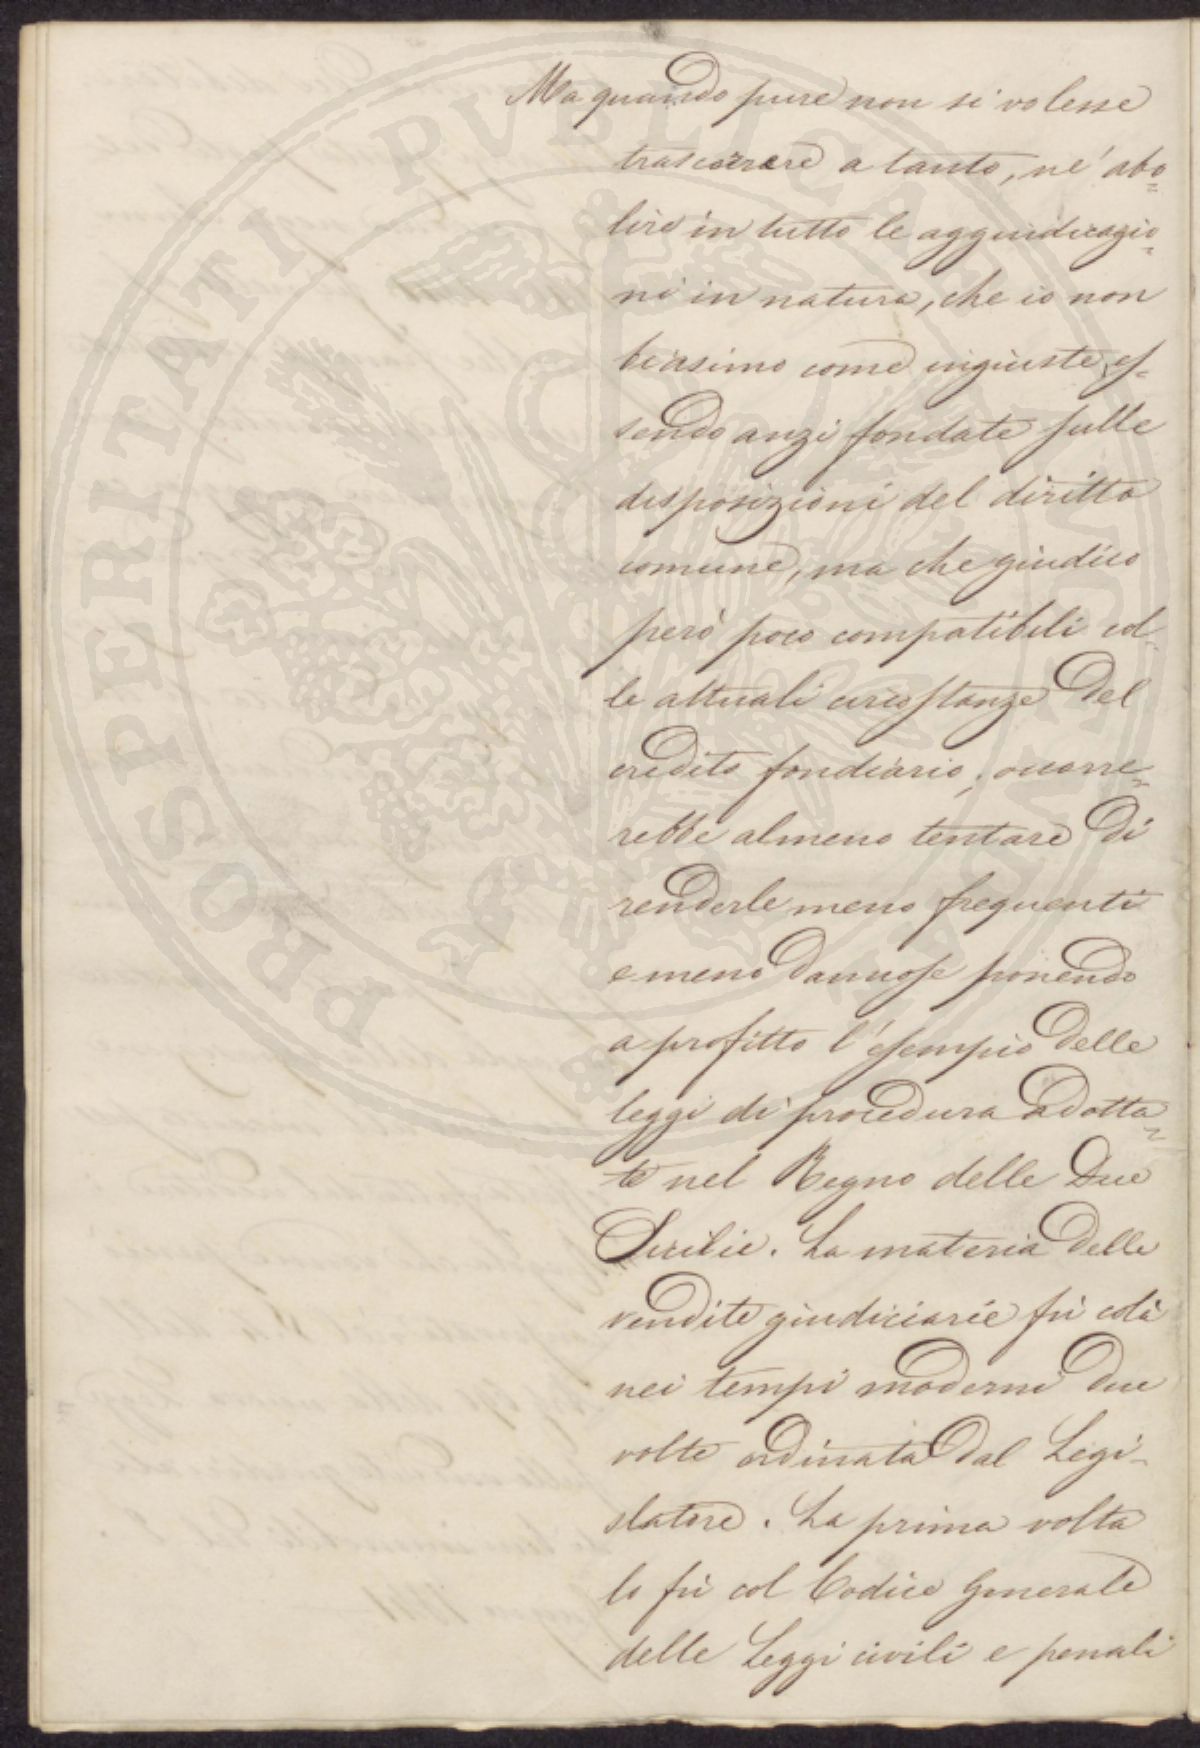 Ma quando pure non si volesse
trascorrere a tanto, né abo=
lire in tutto le aggiudicagio=
ni in natura, che io non
biasimo come ingiuste, es=
sendo anzi fondate sulle
disposizioni del diritto
comune, ma che giudico
però poco compatibili col=
le attuali circostanze del
credito fondiario, occorre=
rebbe almeno tentare di
renderle meno frequenti
e meno dannose ponendo
a profitto l'esempio delle
leggi di procedura adotta=
te nel Regno delle Due
Sicilie. La materia delle
vendite giudiciarie fù colà
nei tempi moderni due
volte ordinata dal Legi=
slatore. La prima volta
lo fù col Codice Generale
delle Leggi civili e penali
PROSPERITATI PUBLICAE AUGENDAE